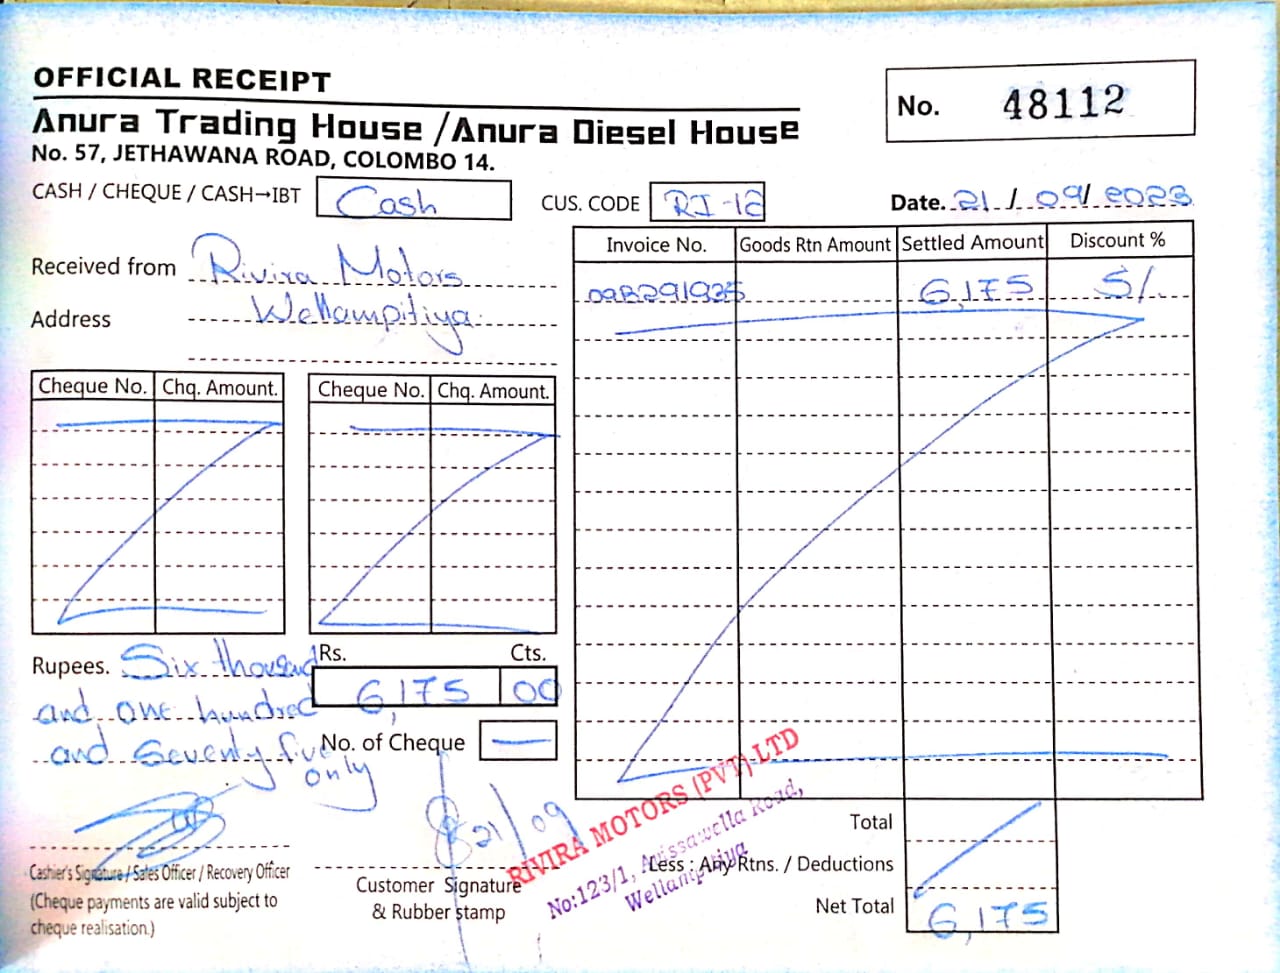 OFFICIAL RECEIPT
Anura Trading House / Anura Diesel House
No. 57, JETHAWANA ROAD, COLOMBO 14.
No. 48112
CASH / CHEQUE / CASH→IBT Cash
CUS. CODE RI-12
Date. 21 / 09 / 2023
Received from Rivira Motors
Address Wellampitiya
Invoice No. Goods Rtn Amount Settled Amount Discount %
6,175 5/.
Cheque No. Chq. Amount. Cheque No. Chq. Amount.
Rupees. Six thousand
and one hundred
and Seventy five
only
Rs. Cts.
6,175 00
No. of Cheque —
21/09
RIVIRA MOTORS (PVT) LTD
No:123/1, Avissawella Road,
Wellampitiya
Cashier's Signature / Sales Officer / Recovery Officer
(Cheque payments are valid subject to
cheque realisation.)
Customer Signature
& Rubber stamp
Total
Less : Any Rtns. / Deductions
Net Total 6,175